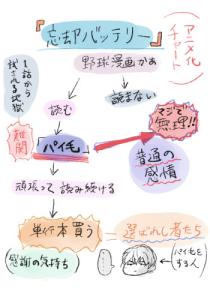 『忘却バッテリー』
(アニメ化チャート)
野球漫画かぁ
1話から試される地獄
読む
読まない
難関
「パイ毛」
マジで無理!!
普通の感情
頑張って読み続ける
単行本買う
選ばれし者たち
(感謝の気持ち)
パイ毛をする人